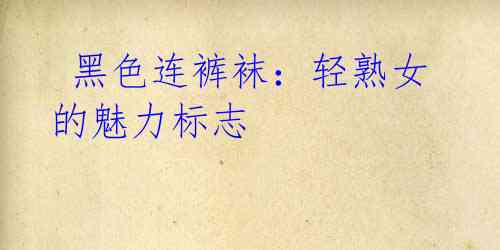 黑色连裤袜：轻熟女
的魅力标志